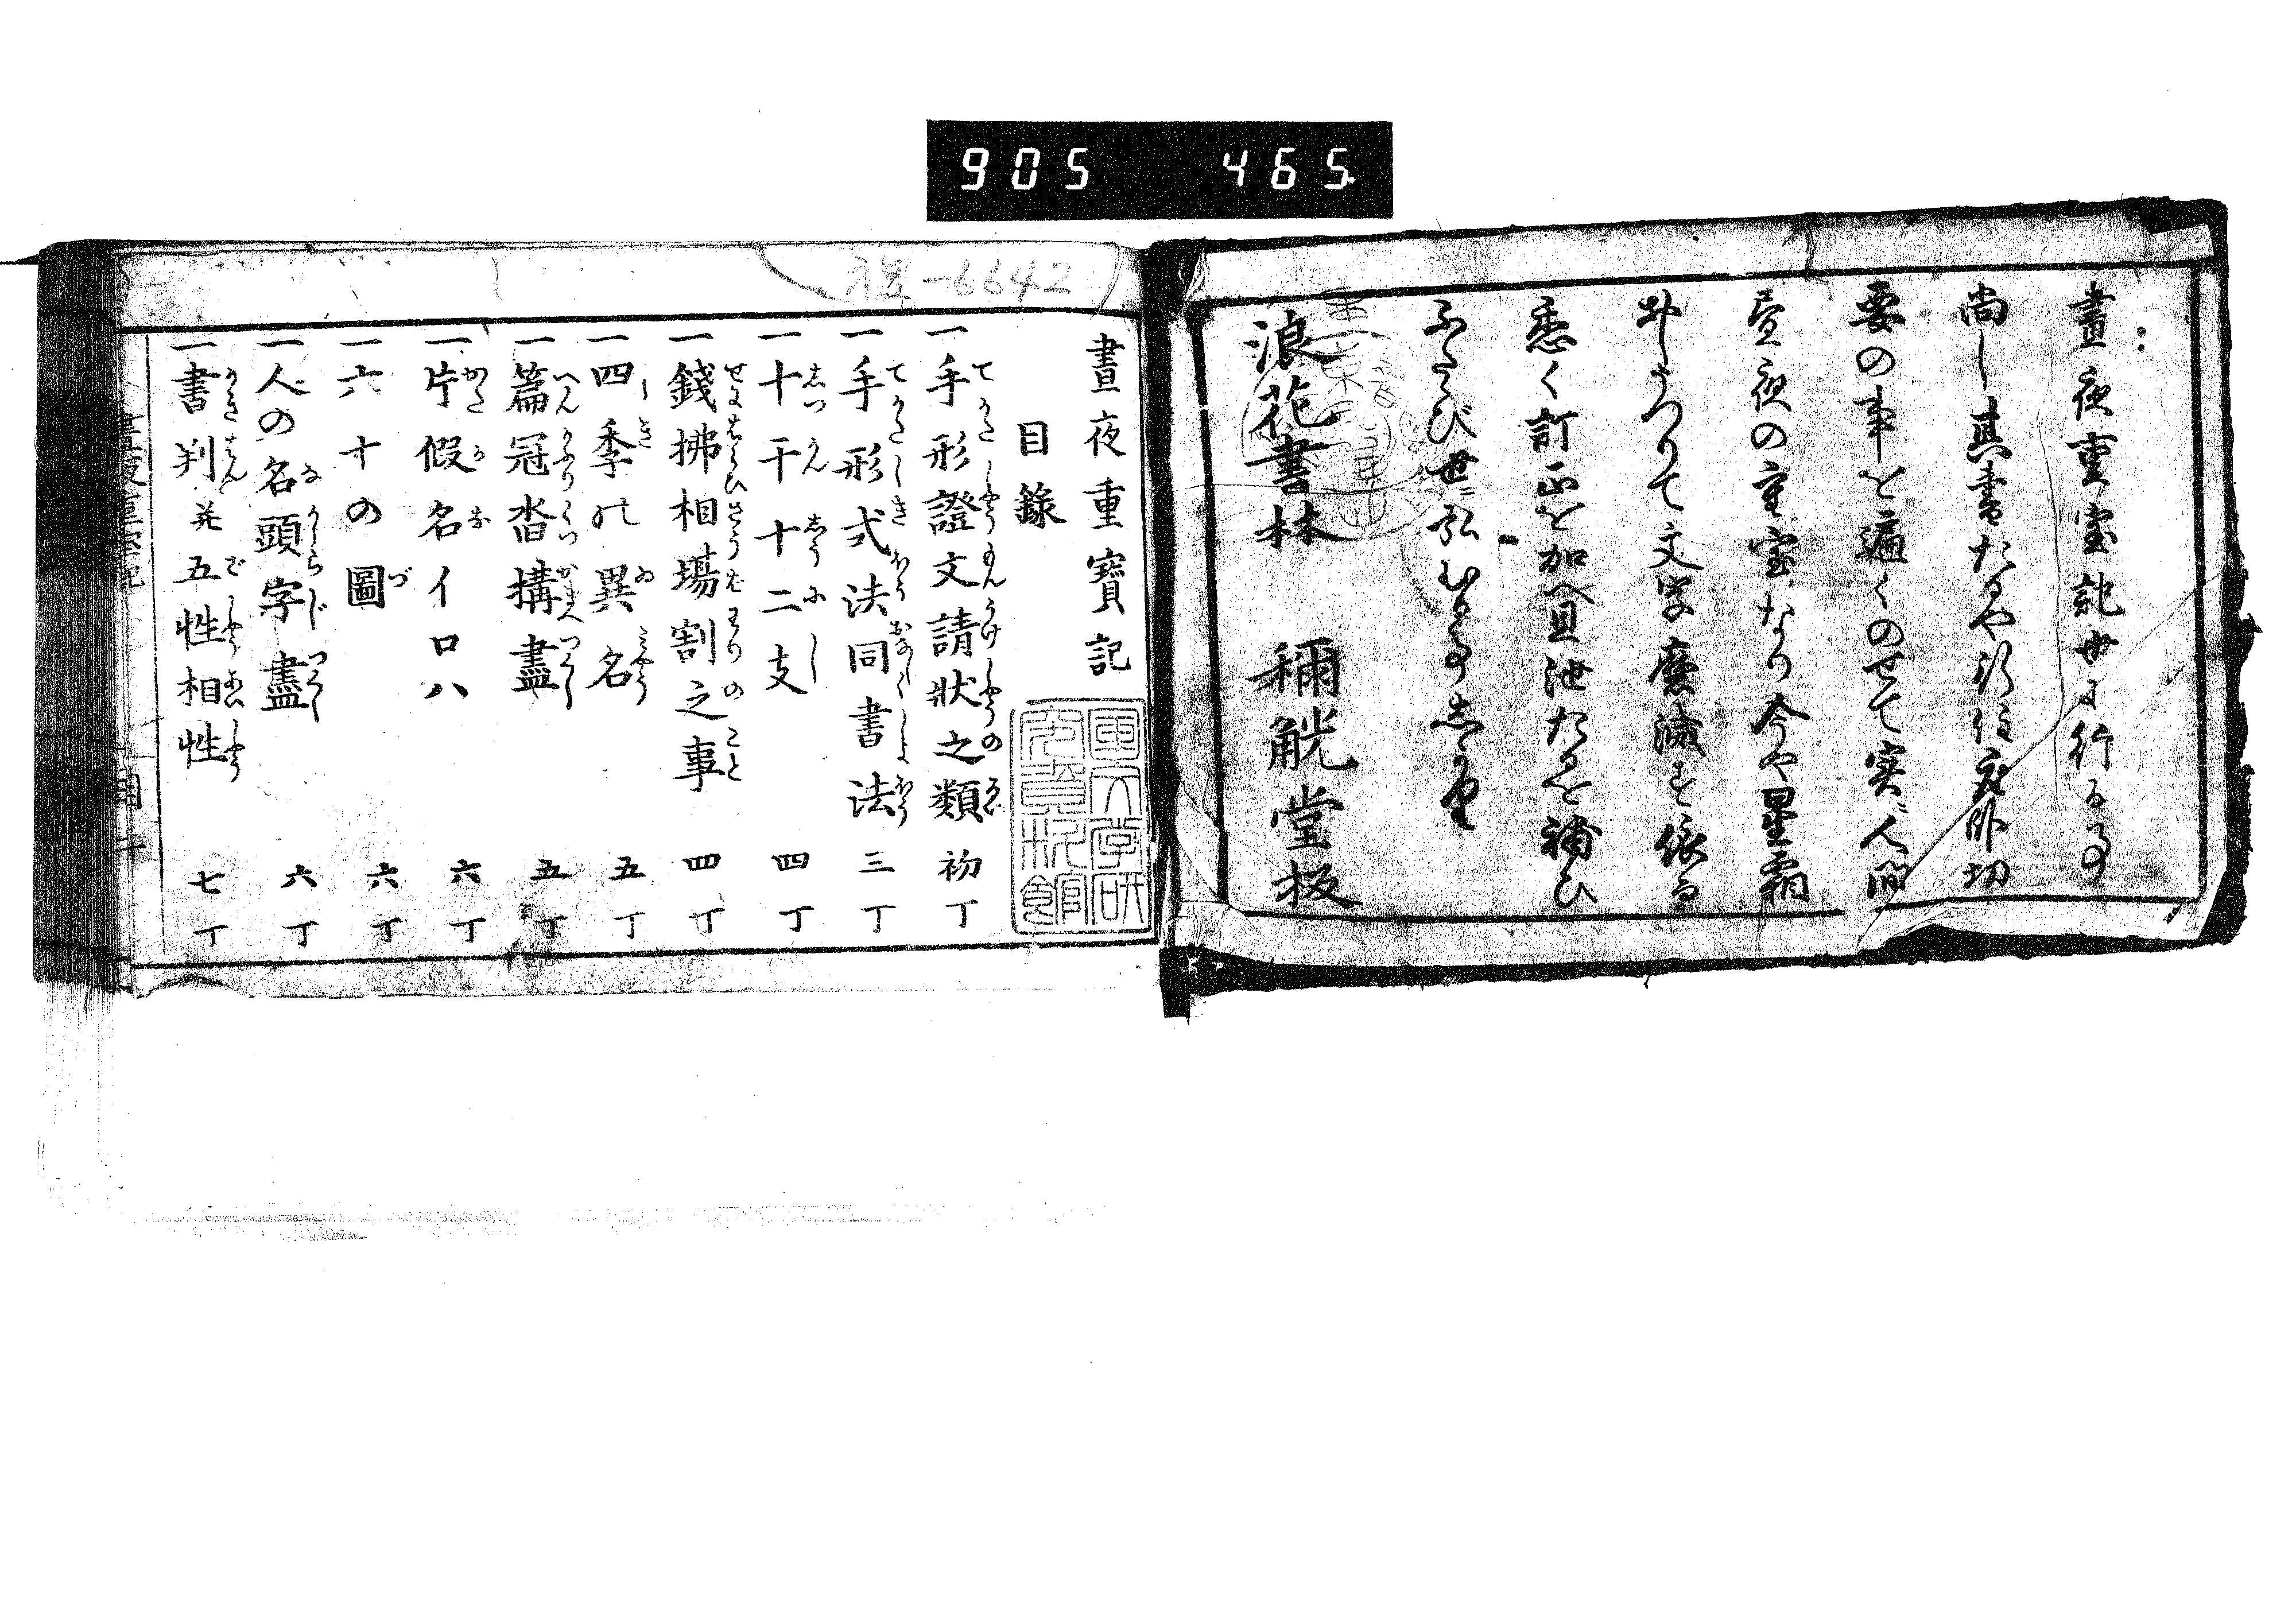 905 465
晝夜重宝記世に行るゝ事
尚し其書たるや行住座臥切
要の事を遍くのせて実ニ人間
昼夜の重宝なり今や星霜
おしうつりて文字磨滅す依る
悉く訂正を加へ且泄たるを補ひ
ふたゝび世ニ弘むる事しかり
浪花書林 稱觥堂板
晝夜重寶記
目錄
一手形證文請狀之類 初丁
一手形式法同書法 三丁
一十干十二支 四丁
一錢拂相場割之事 四丁
一四季の異名 五丁
一篇冠沓構盡 五丁
一片假名イロハ 六丁
一六十の圖 六丁
一人の名頭字盡 六丁
一書判并五性相性 七丁
國文学研究資料館
-6642